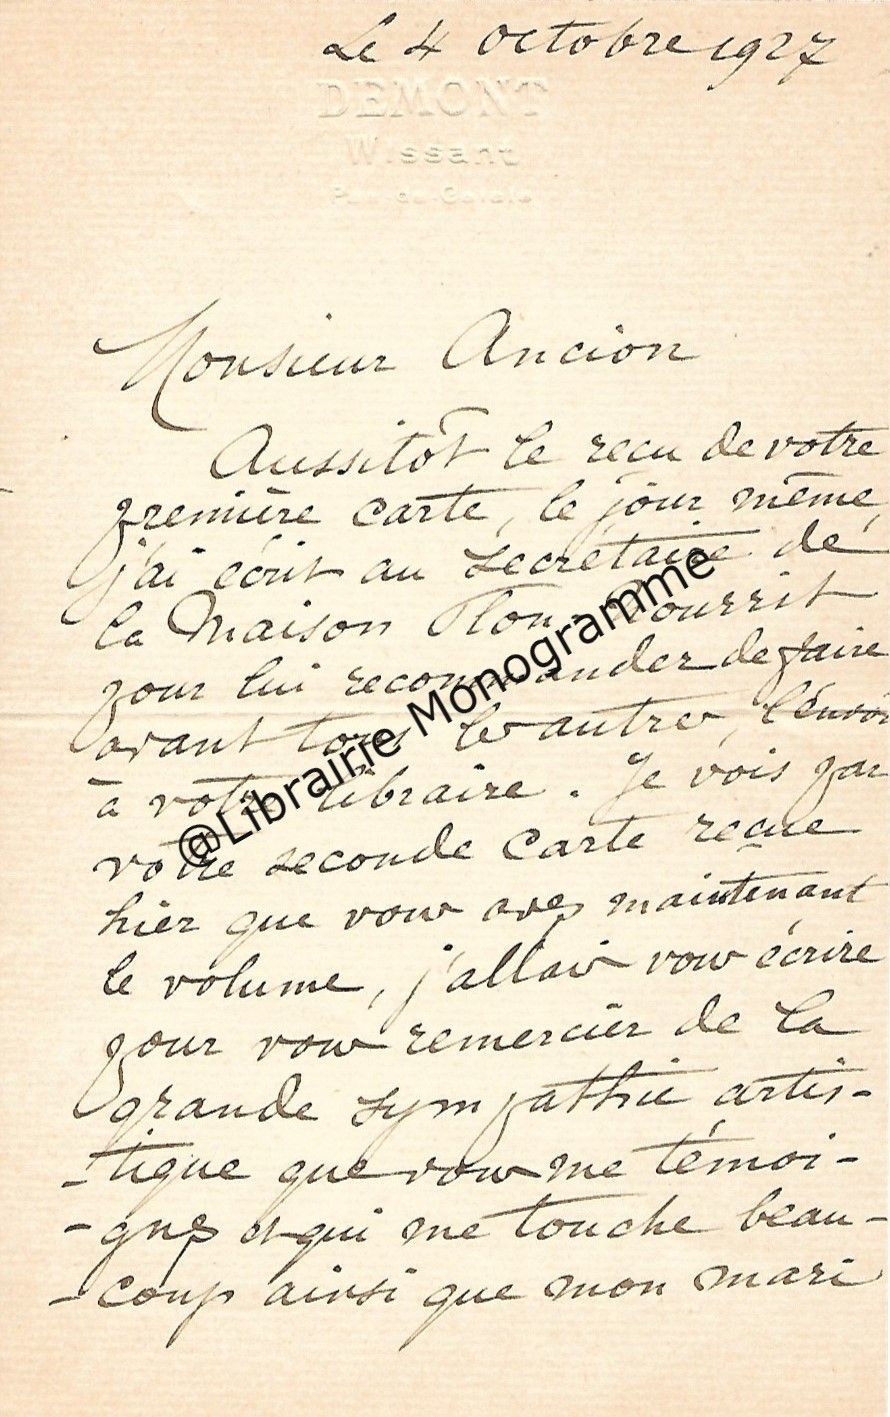 Le 4 octobre 1927
DEMONT
Wissant
Pas-de-Calais
Monsieur Ancion
Aussitôt le reçu de votre
première carte, le jour même,
j'ai écrit au secrétaire de
la Maison Plon-Nourrit
pour lui recommander de faire
avant tous les autres, l'envoi
à votre libraire. Je vois par
votre seconde carte reçue
hier que vous avez maintenant
le volume, j'allais vous écrire
pour vous remercier de la
grande sympathie artis-
-tique que vous me témoi-
-gnez et qui me touche beau-
-coup ainsi que mon mari
@Librairie Monogramme